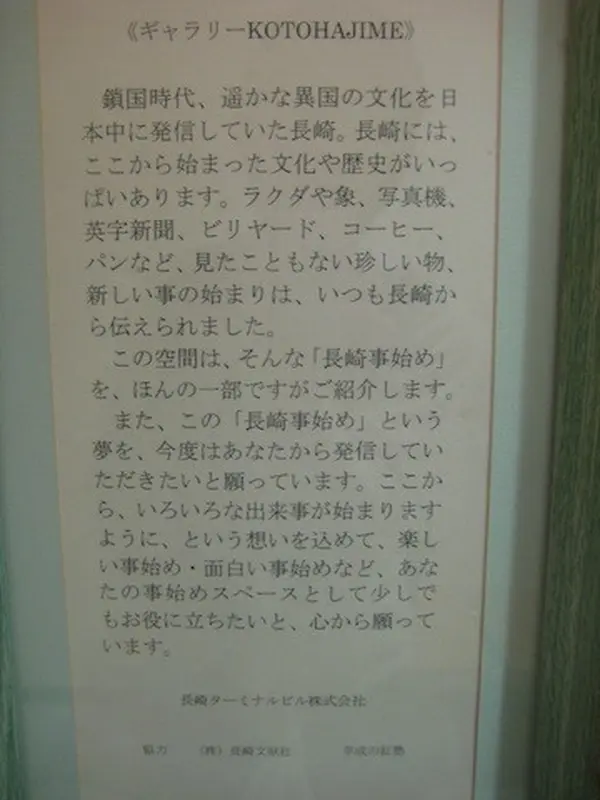 《ギャラリーKOTOHAJIME》
鎖国時代、遥かな異国の文化を日
本中に発信していた長崎。長崎には、
ここから始まった文化や歴史がいっ
ぱいあります。ラクダや象、写真機、
英字新聞、ビリヤード、コーヒー、
パンなど、見たこともない珍しい物、
新しい事の始まりは、いつも長崎か
ら伝えられました。
この空間は、そんな「長崎事始め」
を、ほんの一部ですがご紹介します。
また、この「長崎事始め」という
夢を、今度はあなたから発信してい
ただきたいと願っています。ここか
ら、いろいろな出来事が始まります
ように、という想いを込めて、楽し
い事始め・面白い事始めなど、あな
たの事始めスペースとして少しで
もお役に立ちたいと、心から願って
います。
長崎ターミナルビル株式会社
協力 (株)長崎文献社 平成の